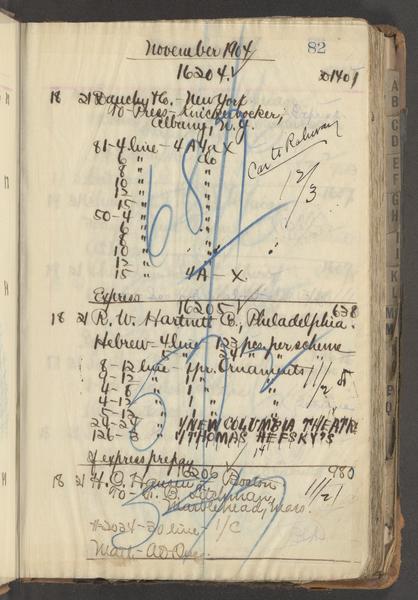 November 1904 82
16204 31401
18 21 Dauchy & Co. - New York
To - Press - Knickerbocker,
Albany, N.Y.
81 - 4 line - 4A4a X
6 " do
8 " "
10 " "
12 " "
15 " "
50 - 4 " "
6 " "
8 " "
10 " "
12 " "
15 " 4A - X
Car to Rahway
12/3
Express
16205 638
18 21 R. W. Hartnett Co, Philadelphia.
Hebrew 4 line 123 per scheme
5 " 24 " "
8 - 12 line - 1 pr. Ornaments
9 - 12 " 1 " "
4 - 8 " 1 " "
4 - 12 " 1 " "
5 - 12 " 1 " "
24 - 24 " 1/NEW COLUMBIA THEATRE
126 - 3 " 1/THOMAS HEFSKY'S
11/25
If express prepay
16206 980
18 21 H. C. Hansen Boston
Marblehead, Mass.
11/21
#2024 - 20 line - 1/C